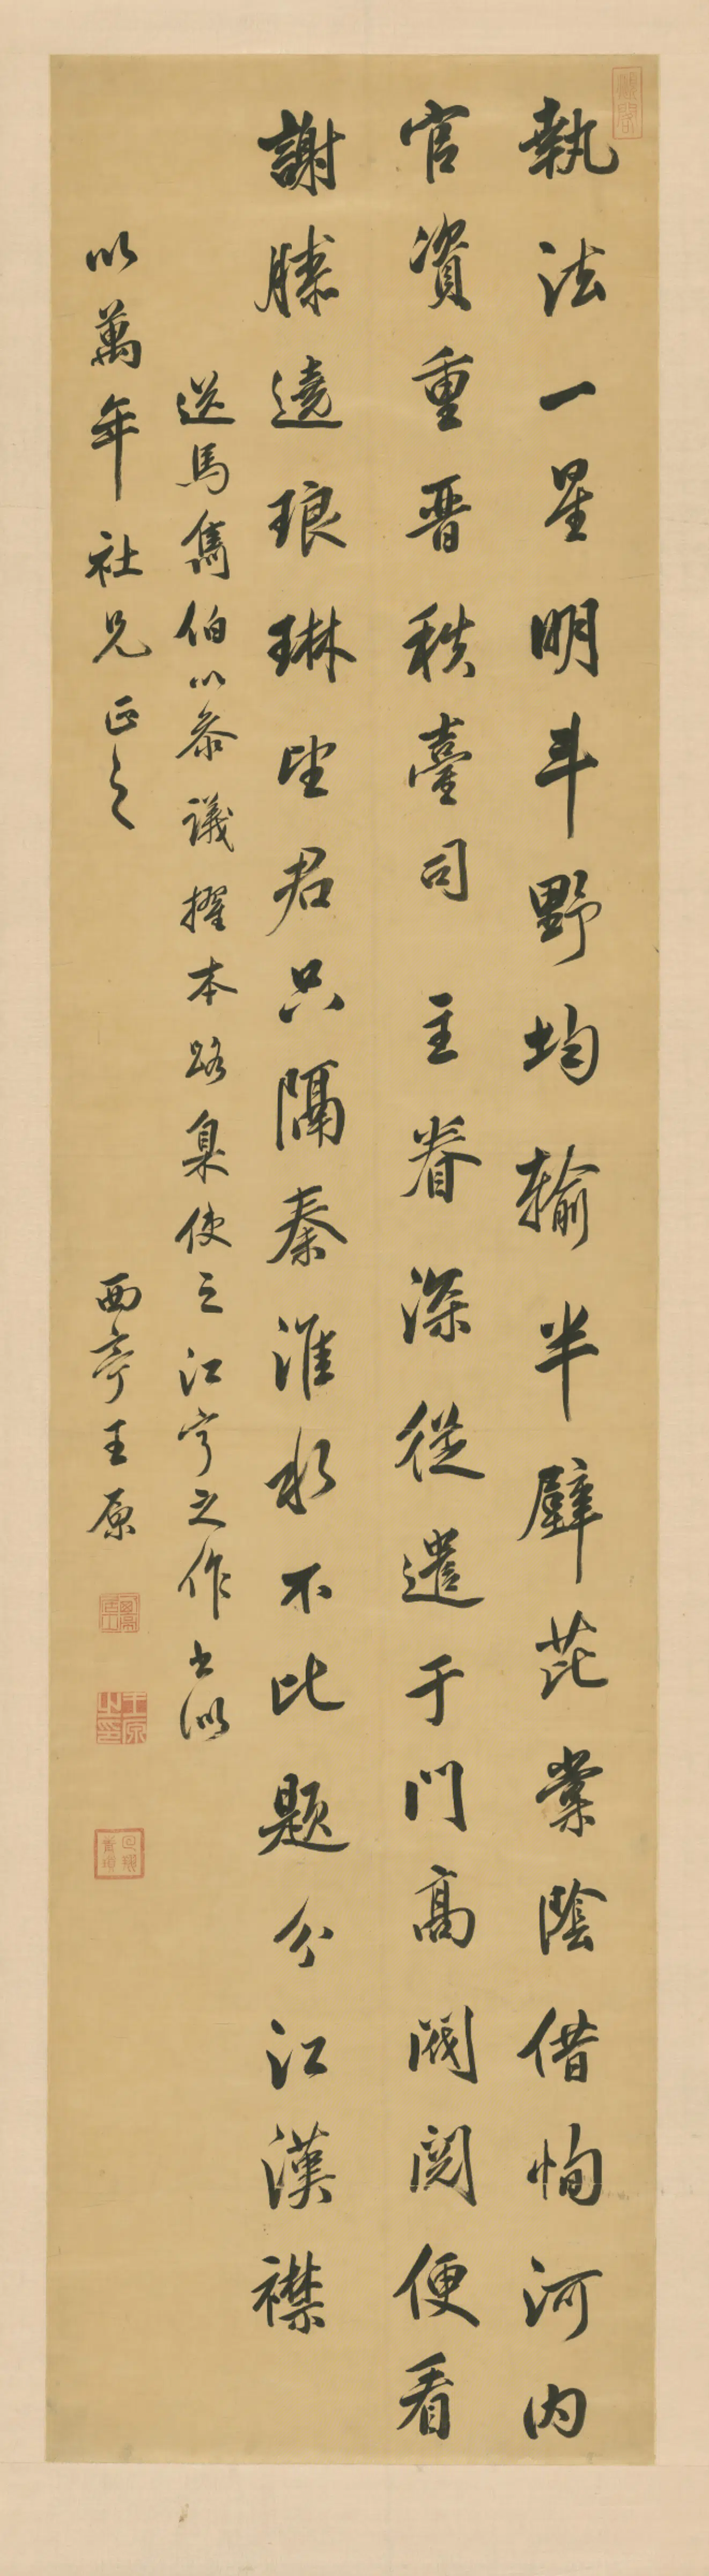 執法一星明斗野均輸半壁芘棠陰借恂河內
官資重晋秩臺司 主眷深從遣于門高閥閱便看
謝勝遶琅琳望君只隔秦淮水不比題分江漢襟
送馬雋伯以叅議擢本路臬使之江寧之作書似
以萬年社兄正之
西亭王原
王原之印